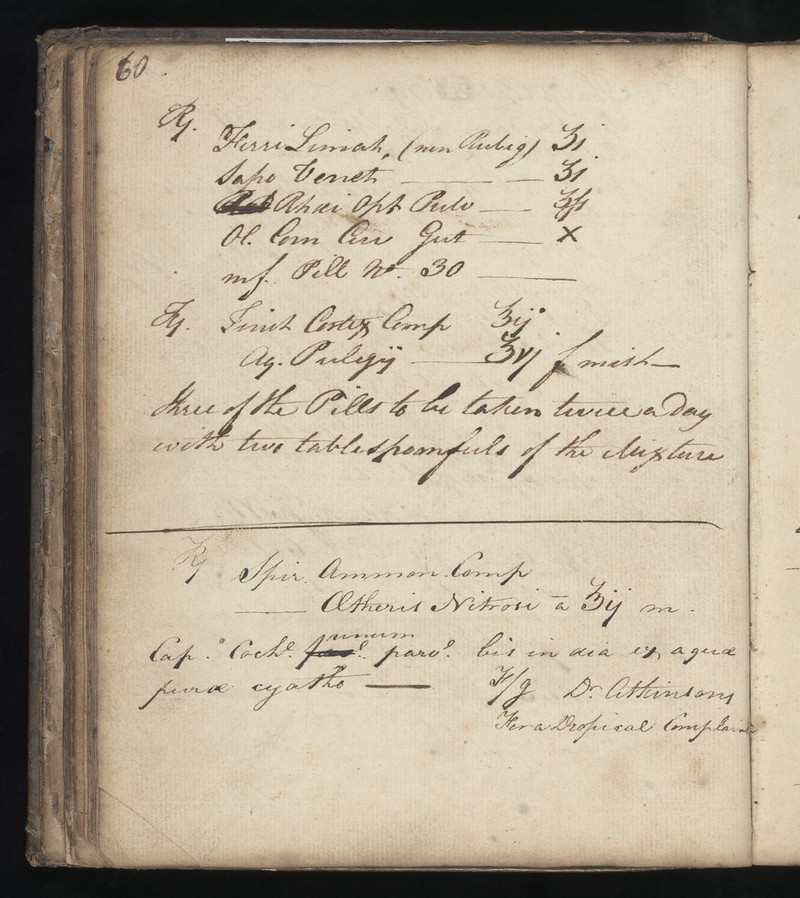 60
Rx. Ferri Limat, (non Rubig) ʒi
Sapo Venet — — ʒi
Rhæi Opt Pulv — ʒſs
Ol. Corn Cerv Gut — X
mf. Pill No. 30 —
Rx. Tinct Cortex Comp ʒij
Aq. Pulegij — ʒvj f mist—
three of the Pills to be taken twice a Day
with two tablespoonfuls of the Mixture
Rx Spir. Ammon. Comp
— Ætheris Nitrosi a ʒij m.
unum
Cap. Cochl. parvl. bis in dia ex aquæ
puræ cyatho — Dr. Atkinsons
For a Dropsical Complaint